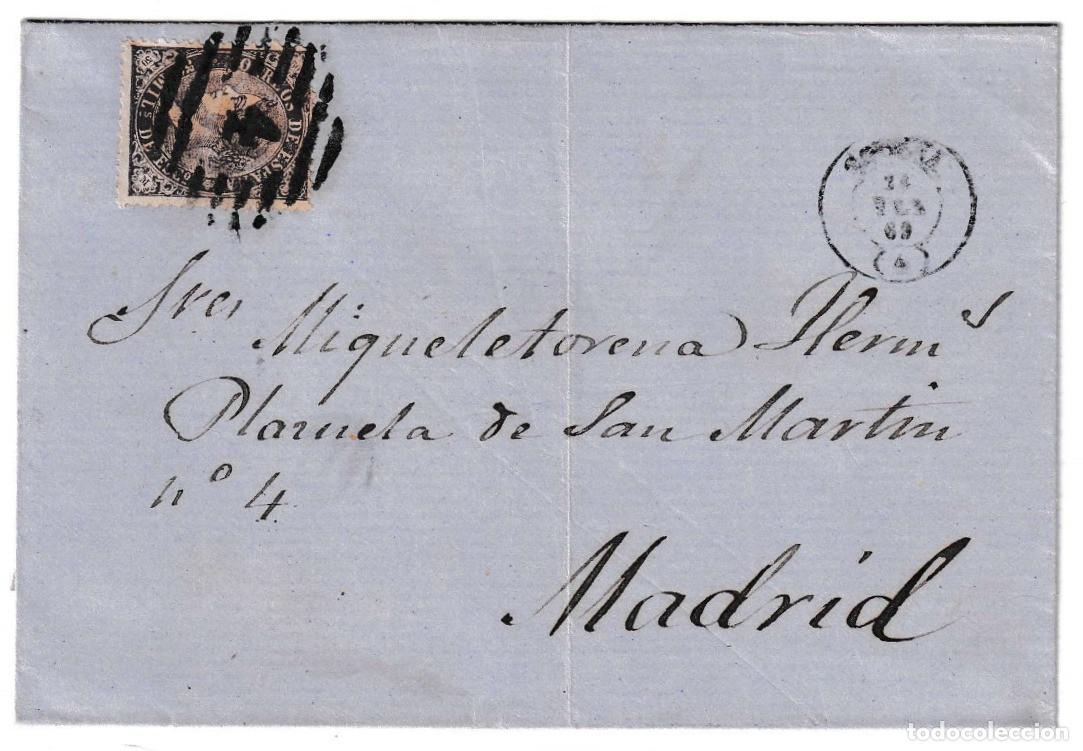 CORREOS DE ESPAÑA
50 MIL.S DE E.O
4
24
69
(4)
Sres Migueletorena Herm.s
Plazuela de San Martin
nº 4
Madrid
todocoleccion